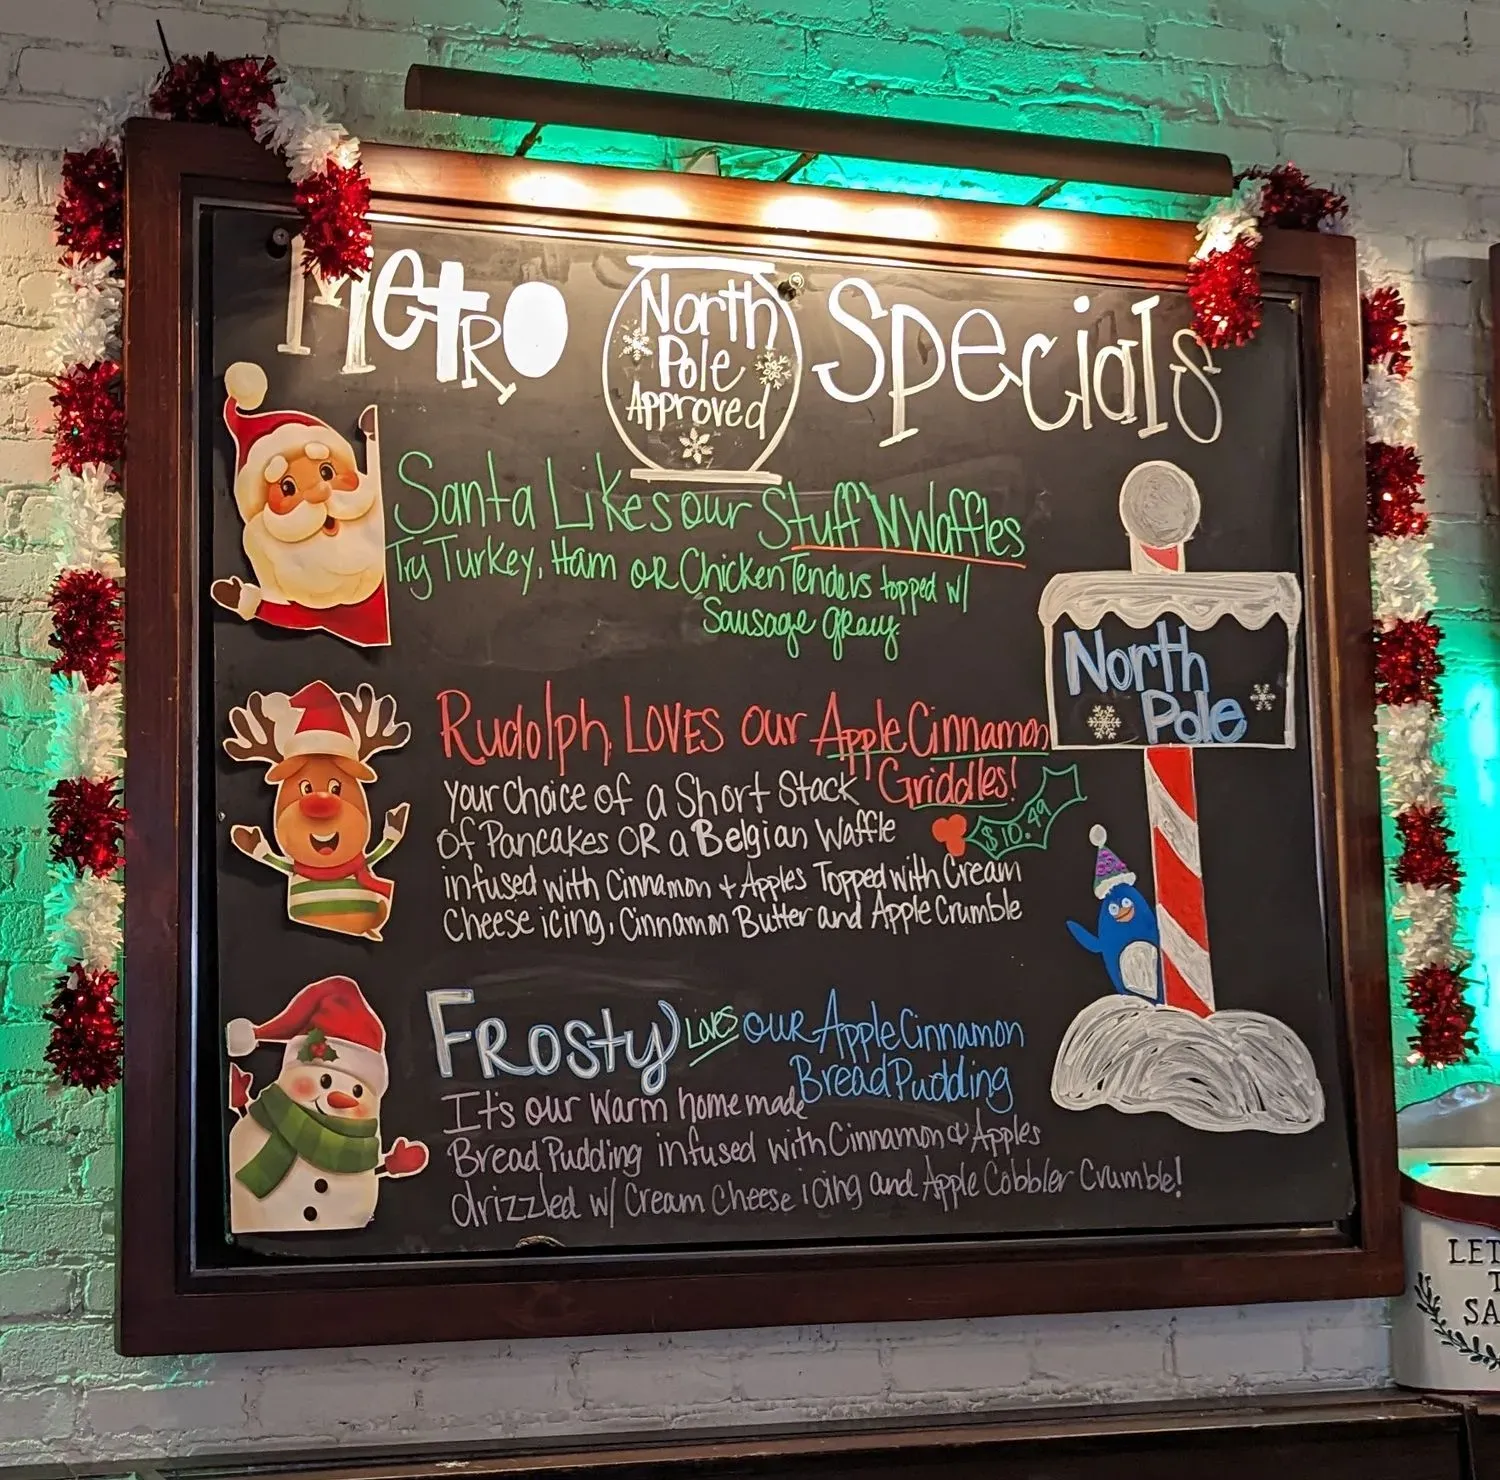 Metro
North
Pole
Approved
Specials
Santa Likes our Stuff 'N Waffles
Try Turkey, Ham OR Chicken Tenders topped w/
Sausage gravy.
North
Pole
Rudolph, LOVES our Apple Cinnamon
Griddles!
your choice of a Short Stack
$10.49
of Pancakes OR a Belgian Waffle
infused with Cinnamon + Apples Topped with Cream
Cheese icing, Cinnamon Butter and Apple Crumble
Frosty Loves our Apple Cinnamon
Bread Pudding
It's our warm homemade
Bread Pudding infused with Cinnamon & Apples
drizzled w/ Cream Cheese icing and Apple Cobbler Crumble!
LET
T
SA